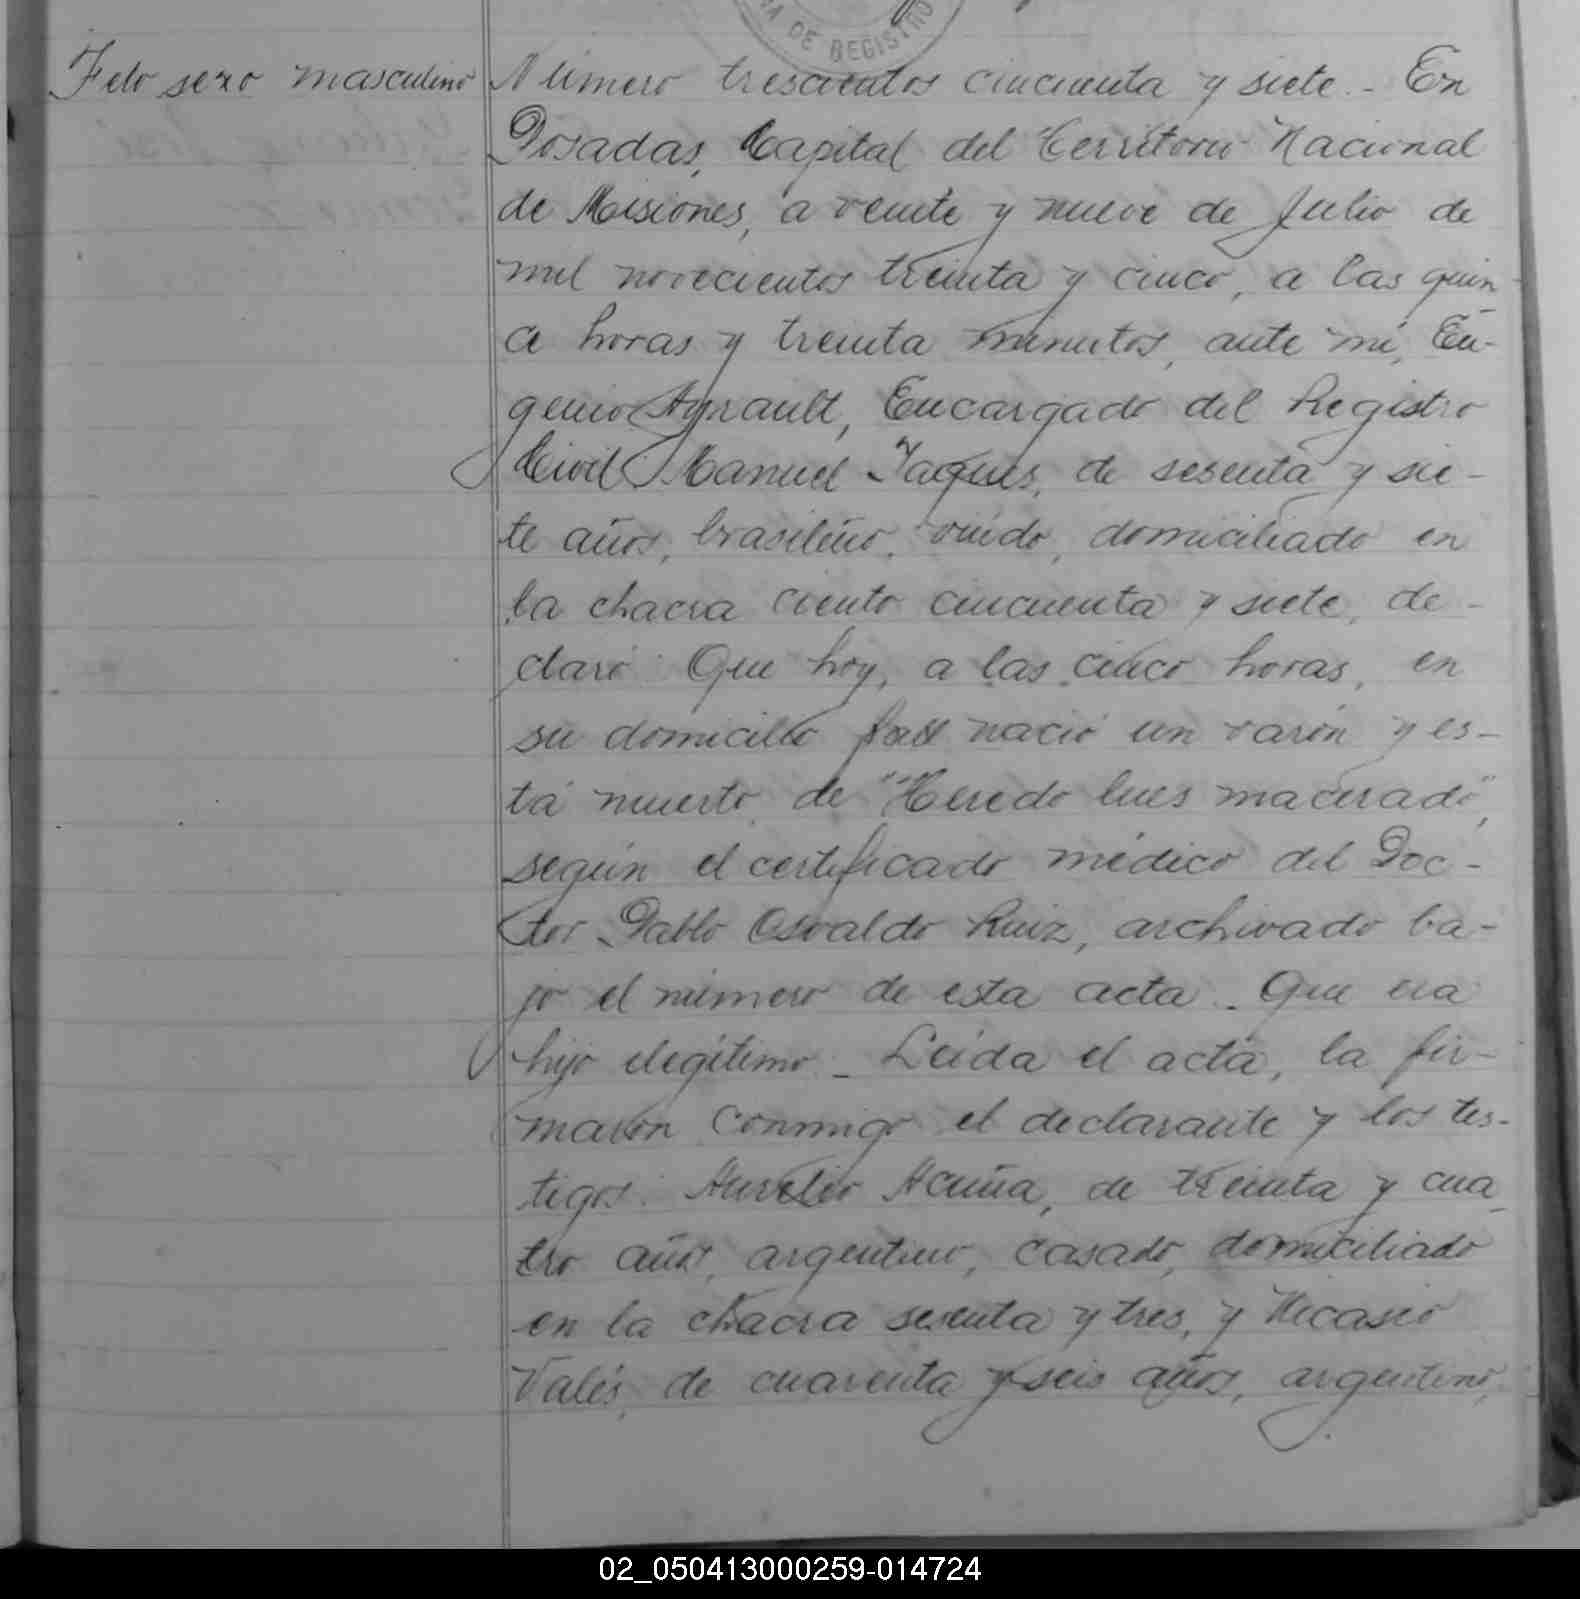 DE REGISTRO
Feto sexo masculino
Número trescientos cincuenta y siete.- En
Posadas, Capital del Territorio Nacional
de Misiones, a veinte y nueve de Julio de
mil novecientos treinta y cinco, a las quin-
ce horas y treinta minutos, ante mí, Eu-
genio Ayrault, Encargado del Registro
Civil, Manuel Jaques, de sesenta y sie-
te años, brasileño, viudo, domiciliado en
la chacra ciento cincuenta y siete, de-
claró: Que hoy, a las cinco horas, en
su domicilio nació un varón y es-
tá muerto, de "Heredo lues macerado",
según el certificado médico del Doc-
tor Pablo Osvaldo Ruiz, archivado ba-
jo el número de esta acta.- Que era
hijo ilegítimo.- Leída el acta, la fir-
maron conmigo el declarante y los tes-
tigos: Aurelio Acuña, de treinta y cua-
tro años, argentino, casado, domiciliado
en la chacra sesenta y tres, y Nicasio
Valés, de cuarenta y seis años, argentino,
02_050413000259-014724